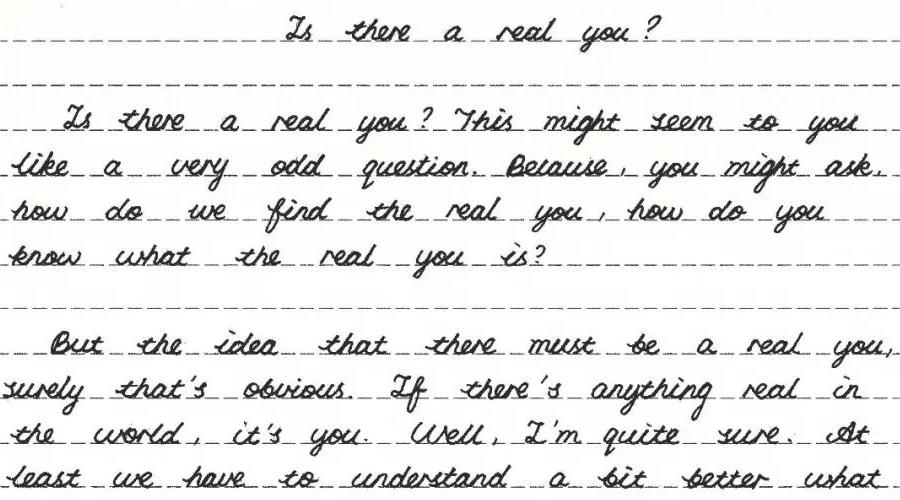 Is there a real you?
Is there a real you? This might seem to you
like a very odd question. Because, you might ask,
how do we find the real you, how do you
know what the real you is?
But the idea that there must be a real you,
surely that's obvious. If there's anything real in
the world, it's you. Well, I'm quite sure. At
least we have to understand a bit better what